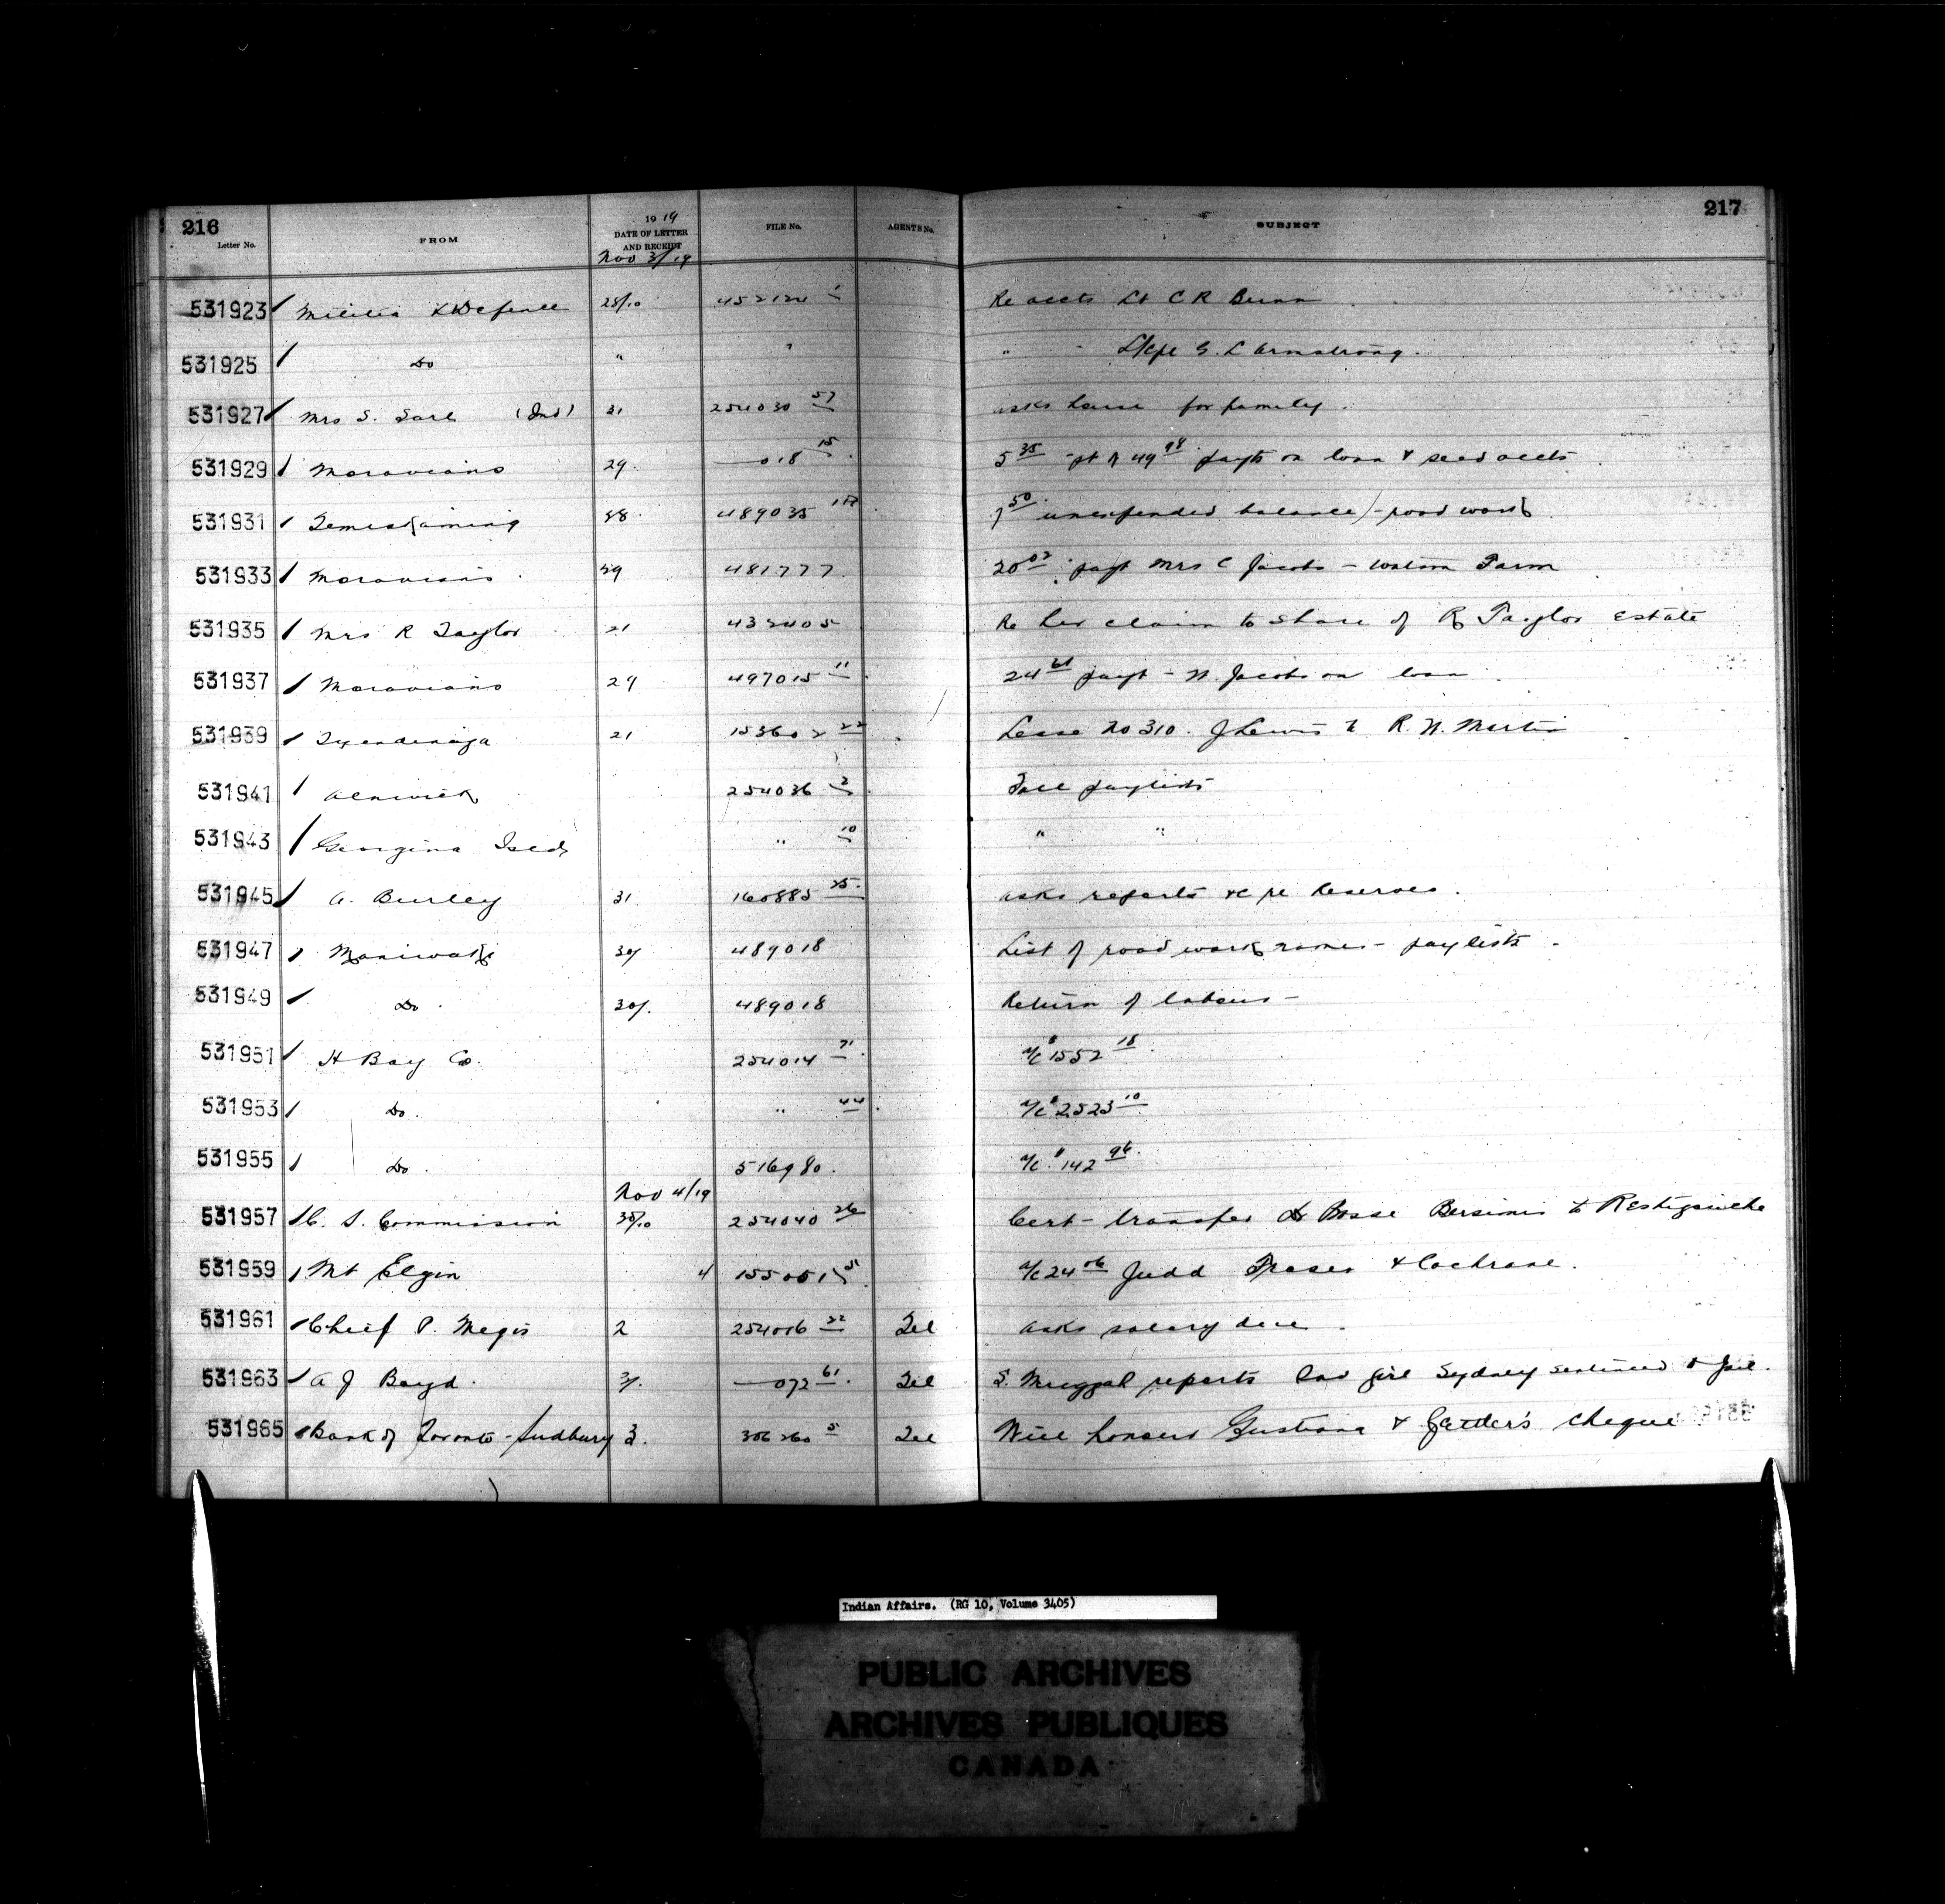 216
217
Letter No. FROM 1919 DATE OF LETTER AND RECEIPT FILE No. AGENTS No. SUBJECT
Nov 3/19
531923 Militia & Defence 28/10 452124 1 Re accts Lt C R Bunn
531925 Do " " " " L/Cpl G. L Armstrong.
531927 Mrs S. Sarl (Ind) 31 254030 57 asks house for family.
531929 Moravians 29. —018 15. 5 35 pt of 49 98 payts on loan & seed accts
531931 Temiskaming 28. 489035 1B. 7 50 unexpended balance - road work
531933 Moravians. 29 481777. 20 02 payt Mrs C Jacobs - Watson Farm
531935 Mrs R Taylor 21 432405 Re her claim to share of R Taylor Estate
531937 Moravians 29 497015 11. 24 61 payt - N. Jacobs on loan.
531939 Tyendinaga 21 153602 22 Lease No 310. J Lewis to R. N. Martin
531941 Alnwick 254036 2. Fall paylists
531943 Georgina Isld " 10 " "
531945 A. Burley 31 160885 25. asks reports &c re Reserves.
531947 Maniwaki 30/ 489018 List of road work names - paylists.
531949 Do. 30/. 489018 Return of labour -
531951 H Bay Co. 254014 71. a/c $1552 18.
531953 Do. " 44. a/c $2523 10
531955 Do. 516980. a/c. $142 96.
Nov 4/19
531957 C. S. Commission 30/10 254040 26 Cert - transfer Dr Bosse Bersimis to Restigouche
531959 Mt Elgin 4 155051 51 a/c 24 06 Judd Fraser & Cochrane.
531961 Chief P. Megis 2 254016 22 Tel asks salary due.
531963 A J Boyd. 3/. —072 61. Tel reports girl Sydney sentenced to jail.
531965 Bank of Toronto - Sudbury 3. 306260 5 Tel Will honour & cheque
Indian Affairs. (RG 10, Volume 3405)
PUBLIC ARCHIVES
ARCHIVES PUBLIQUES
CANADA